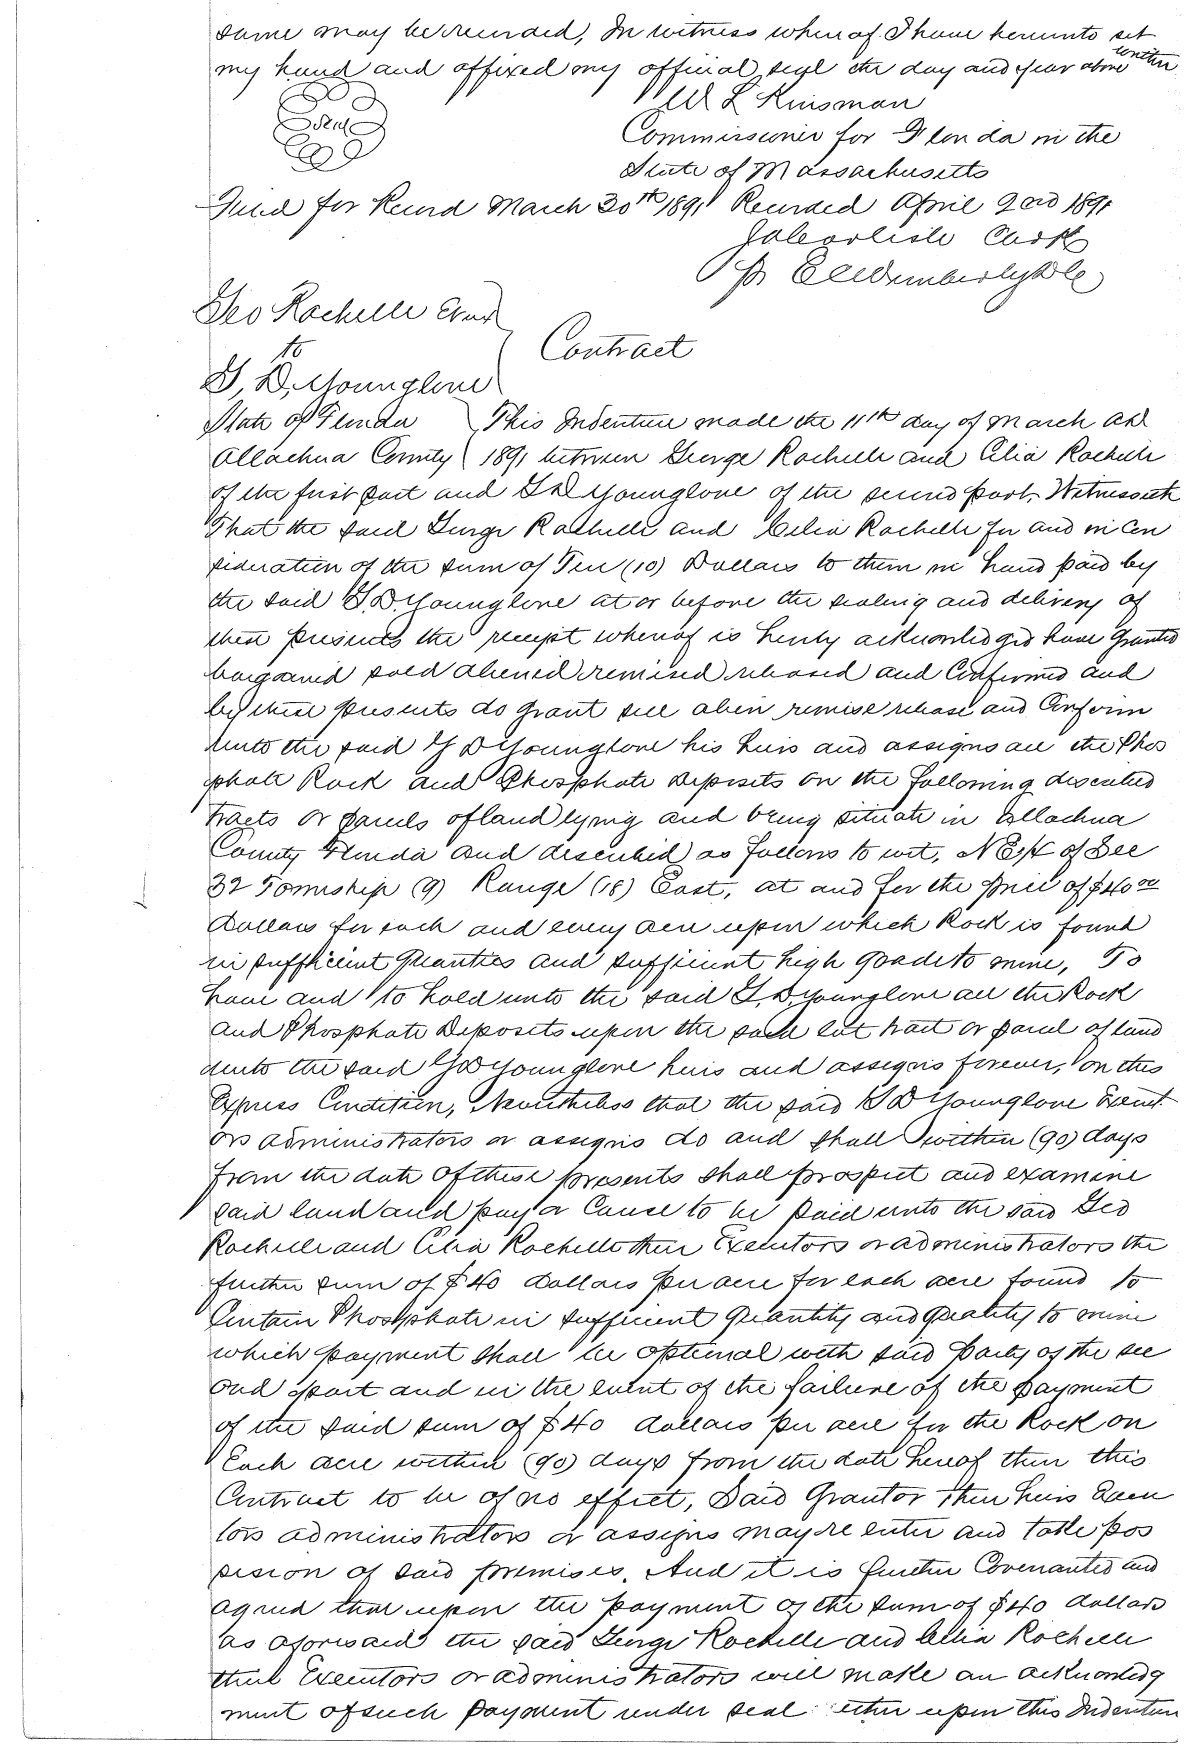 same may be recorded, In witness whereof I have hereunto set
my hand and affixed my official seal the day and year above written
W L Kinsman
Seal
Commissioner for Florida in the
State of Massachusetts
Filed for Record March 30th 1891 Recorded April 2nd 1891
Clerk
Geo Rochelle
to
Contract
G, D, Younglove
State of Florida This Indenture made the 11th day of March AD
Allachua County 1891 between George Rochelle and Celia Rochelle
of the first part and G D Younglove of the second part, Witnesseth
That the said George Rochelle and Celia Rochelle for and in Con
sideration of the sum of Ten (10) Dollars to them in hand paid by
the said G.D. Younglove at or before the sealing and delivery of
these presents the receipt whereof is herby acknowledged have granted
bargained sold aliened remised released and Confirmed and
by these presents do grant sell alien remise release and Confirm
unto the said G D Younglove his heirs and assigns all the Phos
phate Rock and Phosphate Deposits on the following described
tracts or parcels of land lying and being situate in Allachua
County Florida and described as follows to wit, NE 1/4 of Sec
32 Township (9) Range (18) East, at and for the price of $40 00
Dollars for each and every acre upon which Rock is found
in sufficient quanties and sufficient high grade to mine, To
have and to hold unto the said G. D. Younglove all the Rock
and Phosphate Deposits upon the said lot tract or parcel of land
unto the said G D Younglove heirs and assigns forever, on this
Express Condition, Nevertheless that the said G D Younglove Execut
ors administrators or assigns do and shall within (90) days
from the date of these presents shall prospect and examine
said land and pay or Cause to be paid unto the said Geo
Rochelle and Celia Rochelle their Executors or administrators the
further sum of $40 dollars per acre for each acre found to
Contain Phosphate in sufficient Quantity and Quality to mine
which payment shall be optional with said party of the sec
ond part and in the event of the failure of the payment
of the said sum of $40 dollars per acre for the Rock on
Each acre within (90) days from the date hereof then this
Contract to be of no effect, Said Grantor their heirs Execu
tors administrators or assigns may re enter and take pos
sesion of said premises. And it is further Covenanted and
agreed that upon the payment of the sum of $40 dollars
as aforesaid the said George Rochelle and Celia Rochelle
their Executors or administrators will make an acknowledg
ment of such payment under seal either upon this Indenture